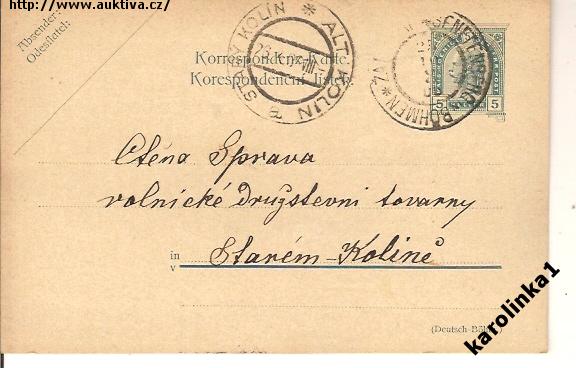 http://www.auktiva.cz/
Absender:
Odesílatel:
Korrespondenz-Karte.
Korespondenční lístek.
ALT KOLIN * STARÝ KOLÍN *
BÖHMEN *
5 5
Ctěná Správa
rolnické družstevní továrny
in
v
Starém-Kolíně
(Deutsch-Böhm.)
karolinka1